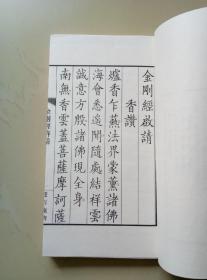 金剛經啟請
香讚
爐香乍爇法界蒙薰諸佛
海會悉遥聞隨處結祥雲
誠意方殷諸佛現全身
南無香雲蓋菩薩摩訶薩